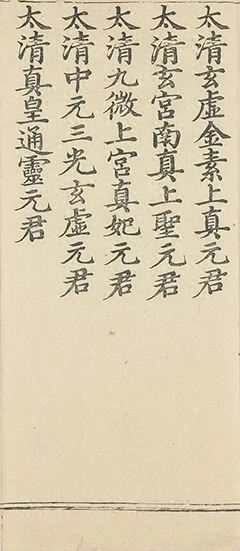 太清玄虛金素上真元君
太清玄宮南真上聖元君
太清九微上宮真妃元君
太清中元三光玄虛元君
太清真皇通靈元君